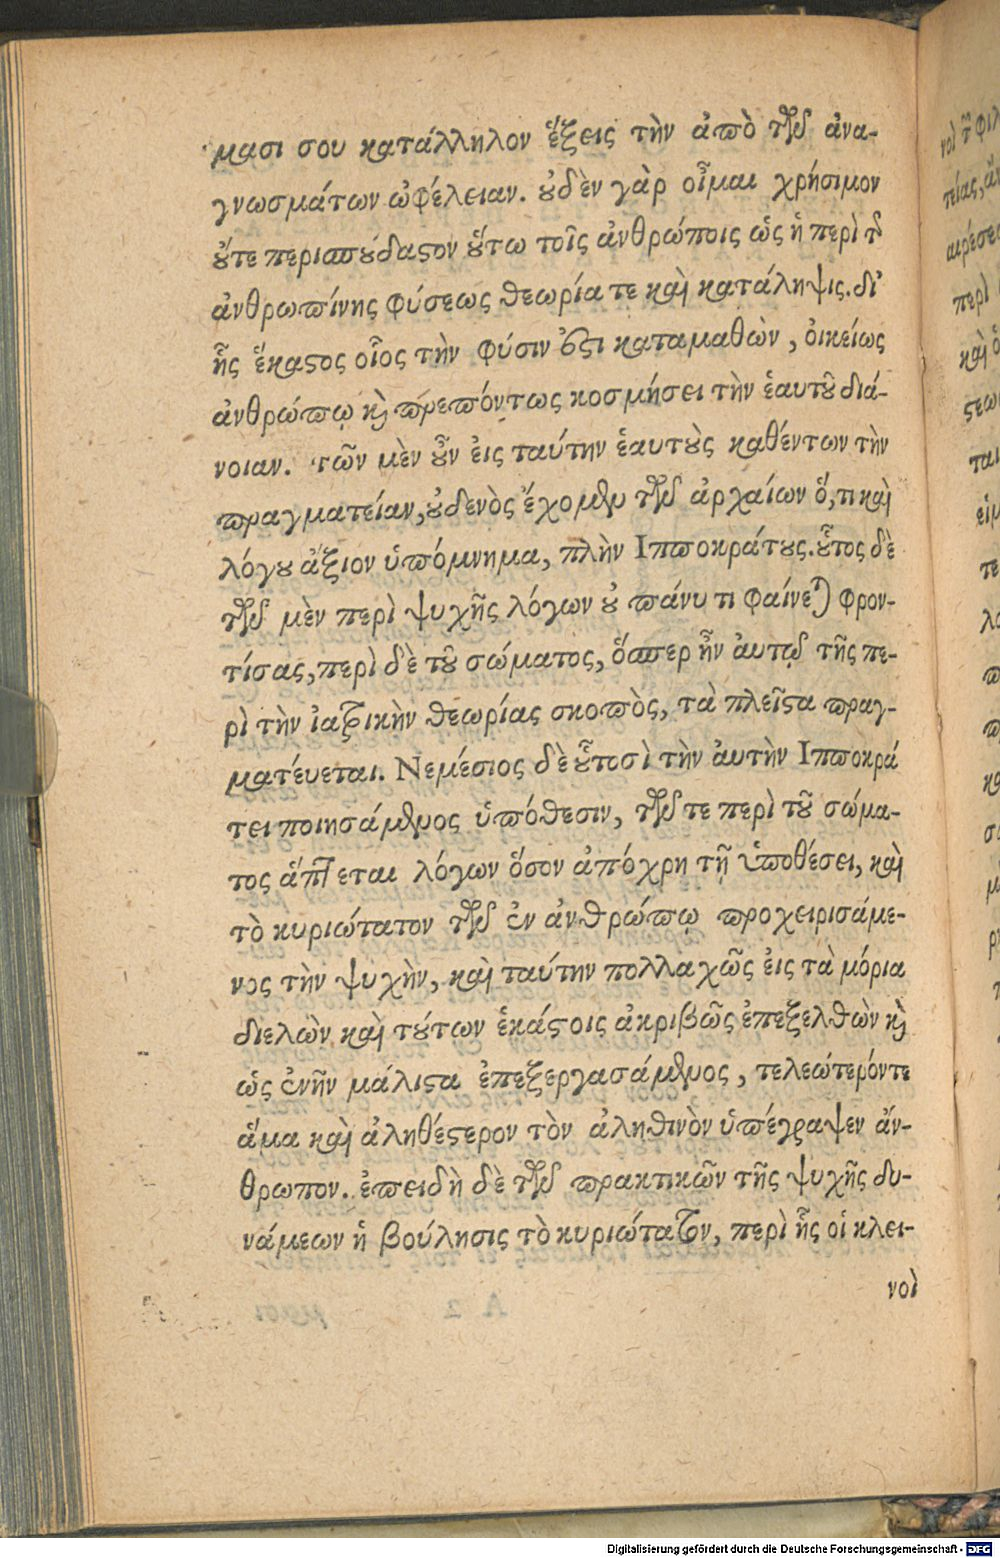 μασι σου κατάλληλον ἕξεις τὴν ἀπὸ τῶν ἀνα-
γνωσμάτων ὠφέλειαν. ȣ̓δὲν γὰρ οἶμαι χρήσιμον
ȣ̓́τε περισπȣ́δαϛον ȣ̔́τω τοῖς ἀνθρώποις ὡς ἡ περὶ τ͂
ἀνθρωπίνης φύσεως θεωρία τε καὶ κατάληψις. δἰ
ἧς ἕκαϛος οἷος τὴν φύσιν ὄϛι καταμαθὼν, ὀικείως
ἀνθρώπῳ κỳ πρεπόντως κοσμήσει τὴν ἑαυτȣ͂ διά-
νοιαν. τῶν μὲν ȣ̓͂ν ἐις ταύτην ἑαυτȣ̀ς καθέντων τὴν
πραγματείαν, ȣ̓δενὸς ἔχομεν τῶν ἀρχαίων ὅ, τι καὶ
λόγȣ ἄξιον ὑπόμνημα, πλὴν Ιπποκράτȣς. ȣ̔͂τος δὲ
τῶν μὲν περὶ ψυχῆς λόγων ȣ̓ πάνυ τι φαίνεται φρον-
τίσας, περὶ δὲ τȣ͂ σώματος, ὅσπερ ἦν ἀυτῷ τῆς πε-
ρὶ τὴν ἰατρικὴν θεωρίας σκοπὸς, τὰ πλεῖϛα πραγ-
ματέυεται. Νεμέσιος δὲ ȣ̔͂τοσὶ τὴν ἀυτὴν Ιπποκρά
τει ποιησάμενος ὑπόθεσιν, τῶν τε περὶ τȣ͂ σώμα-
τος ἅπτεται λόγων ὅσον ἀπόχρη τῇ ὑποθέσει, καὶ
τὸ κυριώτατον τῶν ἐν ἀνθρώπῳ προχειρισάμε-
νος τὴν ψυχὴν, καὶ ταύτην πολλαχῶς ἐις τὰ μόρια
διελὼν καὶ τȣ́των ἑκάϛοις ἀκριβῶς ἐπεξελθὼν κỳ
ὡς ἐνῆν μάλιϛα ἐπεξεργασάμενος, τελεώτερόν τε
ἅμα καὶ ἀληθέϛερον τὸν ἀληθινὸν ὑπέγραψεν ἄν-
θρωπον. ἐπειδὴ δὲ τῶν πρακτικῶν τῆς ψυχῆς δυ-
νάμεων ἡ βούλησις τὸ κυριώτατον, περὶ ἧς οἱ κλει-
νοὶ
Digitalisierung gefördert durch die Deutsche Forschungsgemeinschaft - DFG